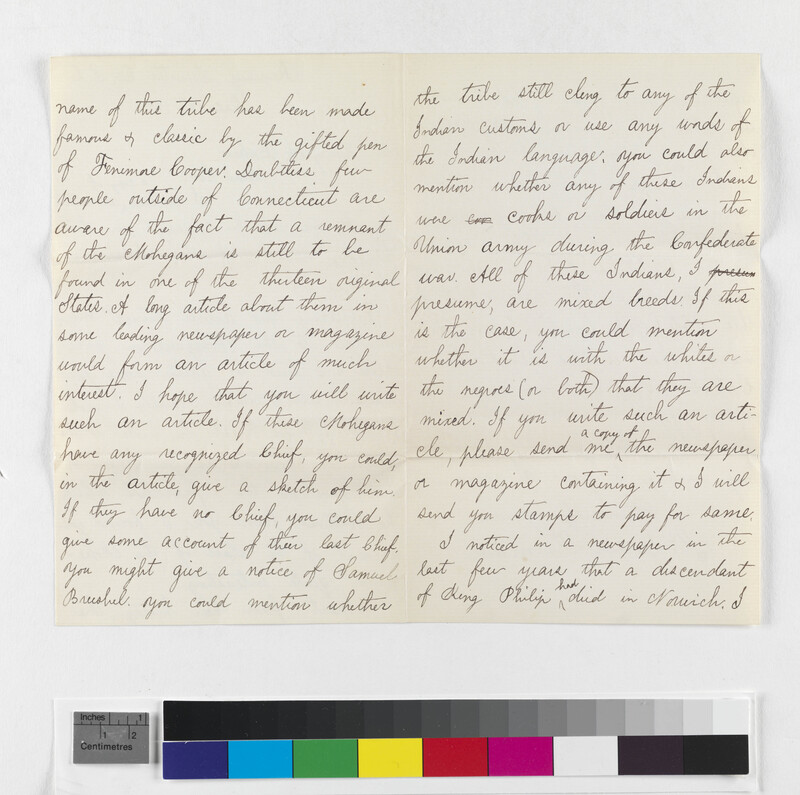 name of this tribe has been made
famous & classic by the gifted pen
of Fenimore Cooper. Doubtless few
people outside of Connecticut are
aware of the fact that a remnant
of the Mohegans is still to be
found in one of the thirteen original
States. A long article about them in
some leading newspaper or magazine
would form an article of much
interest. I hope that you will write
such an article. If these Mohegans
have any recognized Chief, you could,
in the article, give a sketch of him.
If they have no Chief, you could
give some account of their last Chief.
You might give a notice of Samuel
Brushel. You could mention whether
the tribe still cling to any of the
Indian customs or use any words of
the Indian language. You could also
mention whether any of these Indians
were cooks or soldiers in the
Union army during the Confederate
war. All of these Indians, I presum
presume, are mixed breeds. If this
is the case, you could mention
whether it is with the whites or
the negroes (or both) that they are
mixed. If you write such an arti-
cle, please send me a copy of the newspaper
or magazine containing it & I will
send you stamps to pay for same.
I noticed in a newspaper in the
last few years that a descendant
of King Philip had died in Norwich. I
Inches 1
1 2
Centimetres